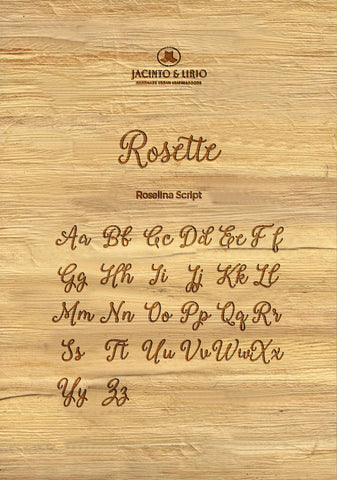 JACINTO & LIRIO
Rosette
Rosalina Script
Aa Bb Cc Dd Ee Ff
Gg Hh Ii Jj Kk Ll
Mm Nn Oo Pp Qq Rr
Ss Tt Uu Vv Ww Xx
Yy Zz